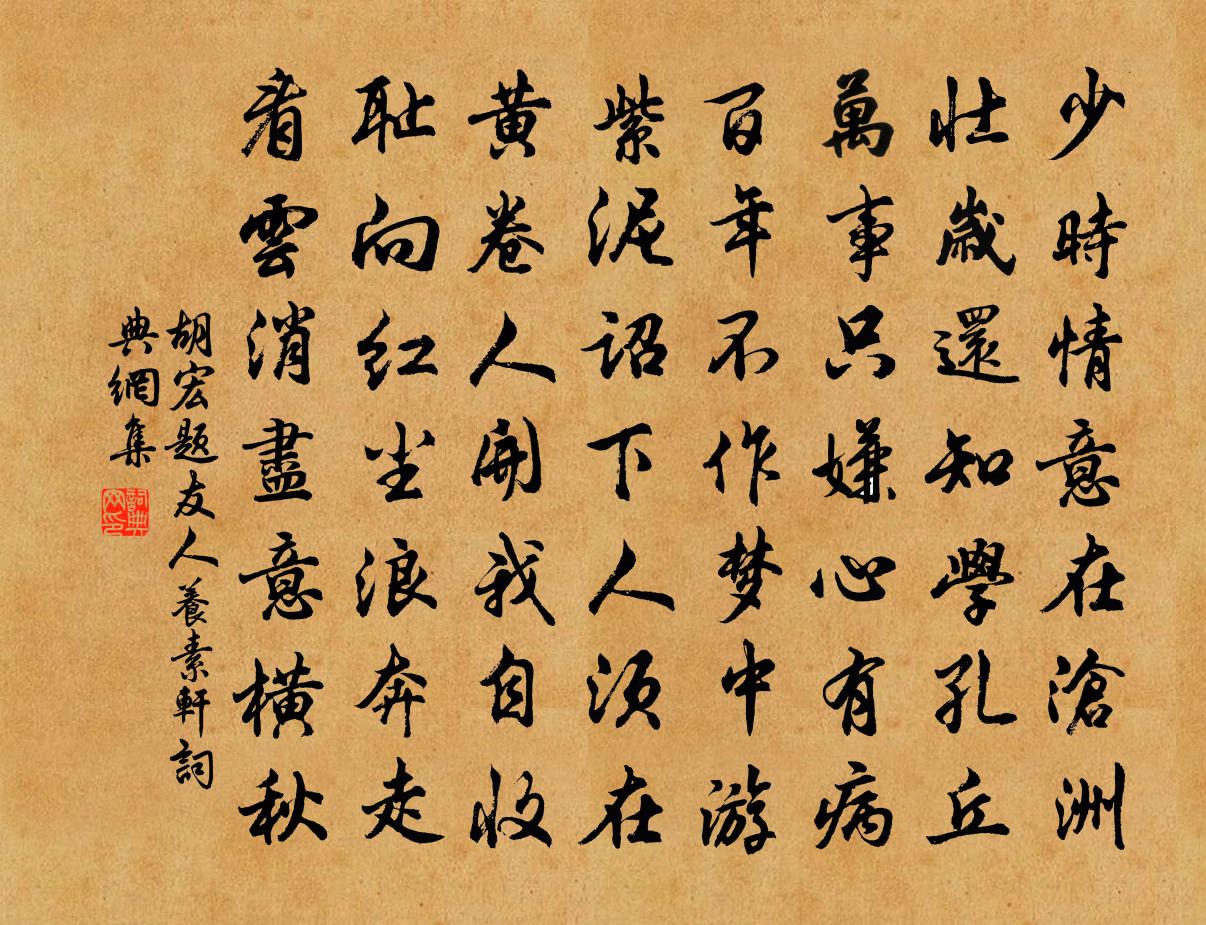 少時情意在滄洲
壯歲還知學孔丘
萬事只嫌心有病
百年不作梦中游
紫泥詔下人須在
黄卷人開我自收
耻向红尘浪奔走
看雲消盡意橫秋
胡宏题友人養素軒詞
典網集
詞典网印